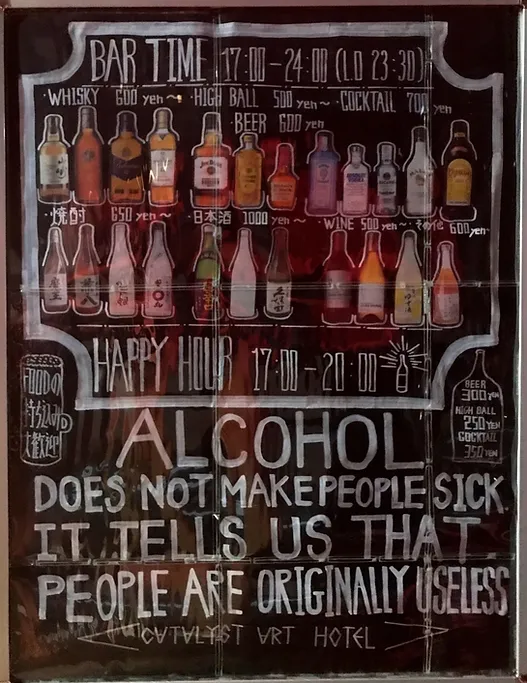 BAR TIME 17:00-24:00 (L.O 23:30)
・WHISKY 600 yen~ ・HIGH BALL 500 yen~ ・COCKTAIL 700 yen
・BEER 600 yen
・焼酎 650 yen~ ・日本酒 1000 yen~ ・WINE 500 yen~ ・その他 600 yen~
HAPPY HOUR 17:00-20:00
FOODの
持ち込み
大歓迎
BEER
300 YEN
HIGH BALL
250 YEN
COCKTAIL
350 YEN
ALCOHOL
DOES NOT MAKE PEOPLE SICK
IT TELLS US THAT
PEOPLE ARE ORIGINALLY USELESS
CATALYST ART HOTEL